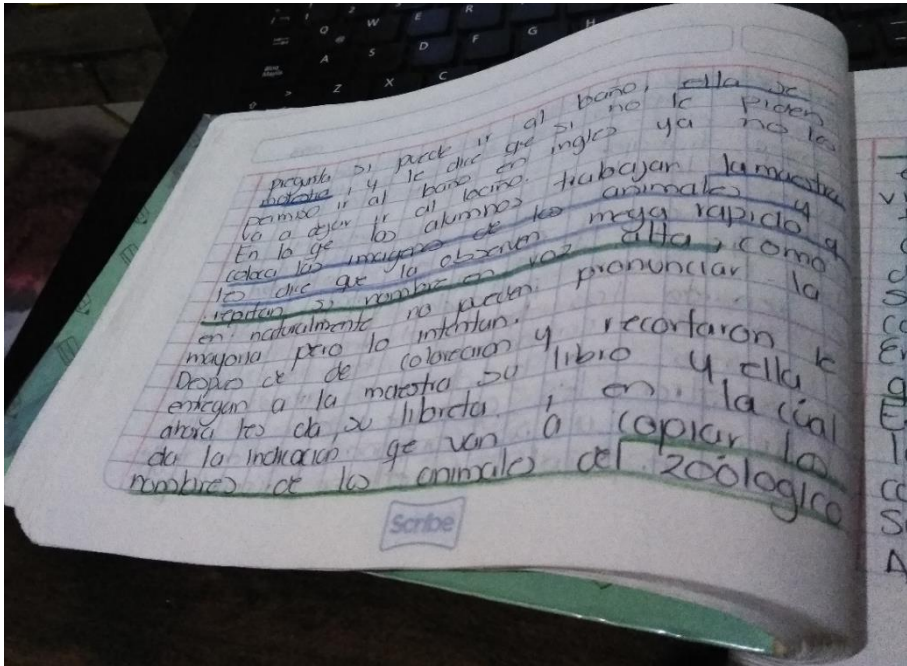 pregunta si puede ir al baño, ella se
molesta, y le dice qe si no le piden
permiso ir al baño en ingles ya no les
va a dejar ir al
En lo qe los alumnos trabajan la maestra
coloca las imagenes de los animales y
les dice qe la observen muya rapido y
repitan si nombre en voz alta, como
en naturalmente no pueden pronunciar la
mayoria pero lo intentan.
Despues de de colorearon y recortaron le
entregan a la maestra su libro y ella
ahora les da, su libreta, y en la cúal
da la indicacion qe van a copiar los
nombres de los animales del zoólogico
Scribe